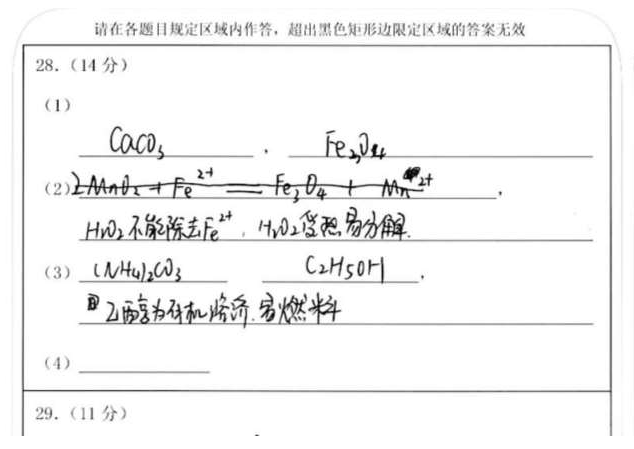 请在各题目规定区域内作答，超出黑色矩形边限定区域的答案无效
28.（14 分）
（1）
CaCO₃ ， Fe₃O₄
（2）2MnO₂ + Fe²⁺ == Fe₃O₄ + Mn²⁺ ，
H₂O₂不能除去Fe²⁺，H₂O₂受热易分解.
（3）(NH₄)₂CO₃ C₂H₅OH ，
乙醇为有机溶济.易燃料
（4）
29.（11 分）